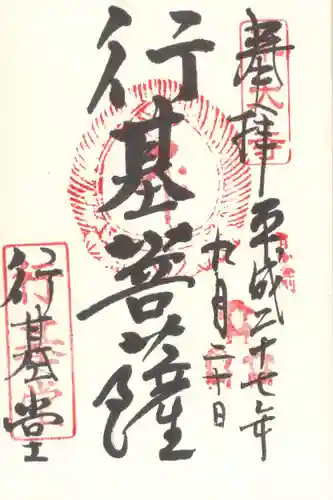 奉拝
平成二十七年
九月二十日
行基菩薩
行基堂